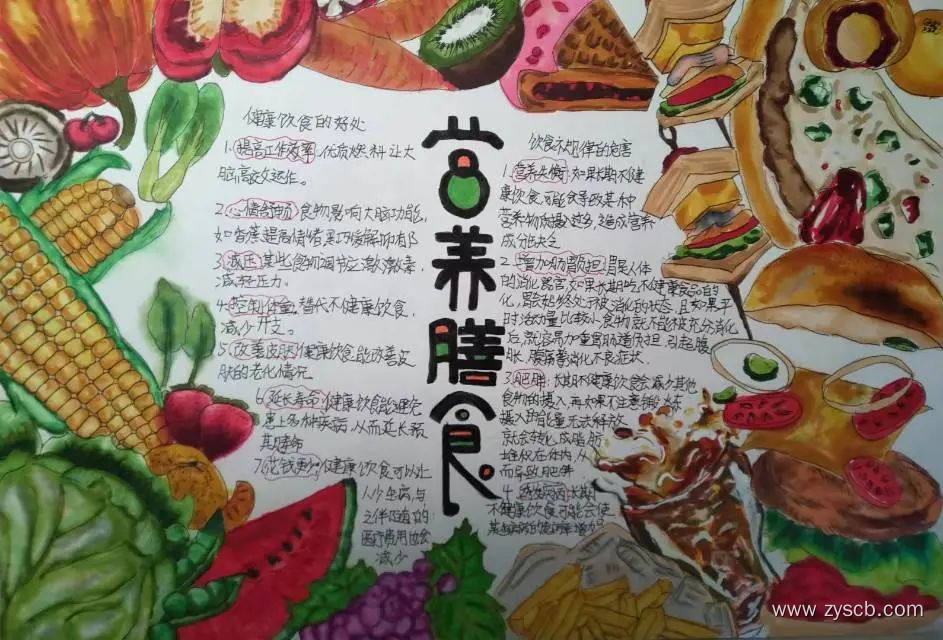 营养膳食
健康饮食的好处
1.提高工作效率优质燃料让大
脑高效运作。
2.心情舒畅食物影响大脑功能,
如香蕉提高情绪
3.减压某些食物调节应激激素,
减轻压力。
4.控制体重替代不健康饮食,
减少开支。
5.改善皮肤健康饮食能改善皮
肤的老化情况
6.延长寿命健康饮食能避免
患上多种疾病,从而延长预
期寿命
7.花钱更少健康饮食可以让
人少生病,与
之伴随的
医疗费用也会
减少
饮食不规律的危害
1.营养失衡如果长期不健
康饮食,可能会导致某种
营养物质摄入过少,造成营养
成分缺乏
2.增加肠胃负担胃是人体
的消化器官如果长期吃不健康食品的
化,胃会始终处于被消化的状态,且如果平
时活动量比较小食物就不能被充分消化
后,就容易加重胃肠道负担,引起腹
胀、腹痛等消化不良症状。
3.肥胖:长期不健康饮食会减少其他
食物的摄入,再如果不注意锻炼
摄入的能量无法释放
就会转化成脂肪
堆积在体内,从
而导致肥胖
4.
长期
不健康饮食可能会使
www.zyscb.com